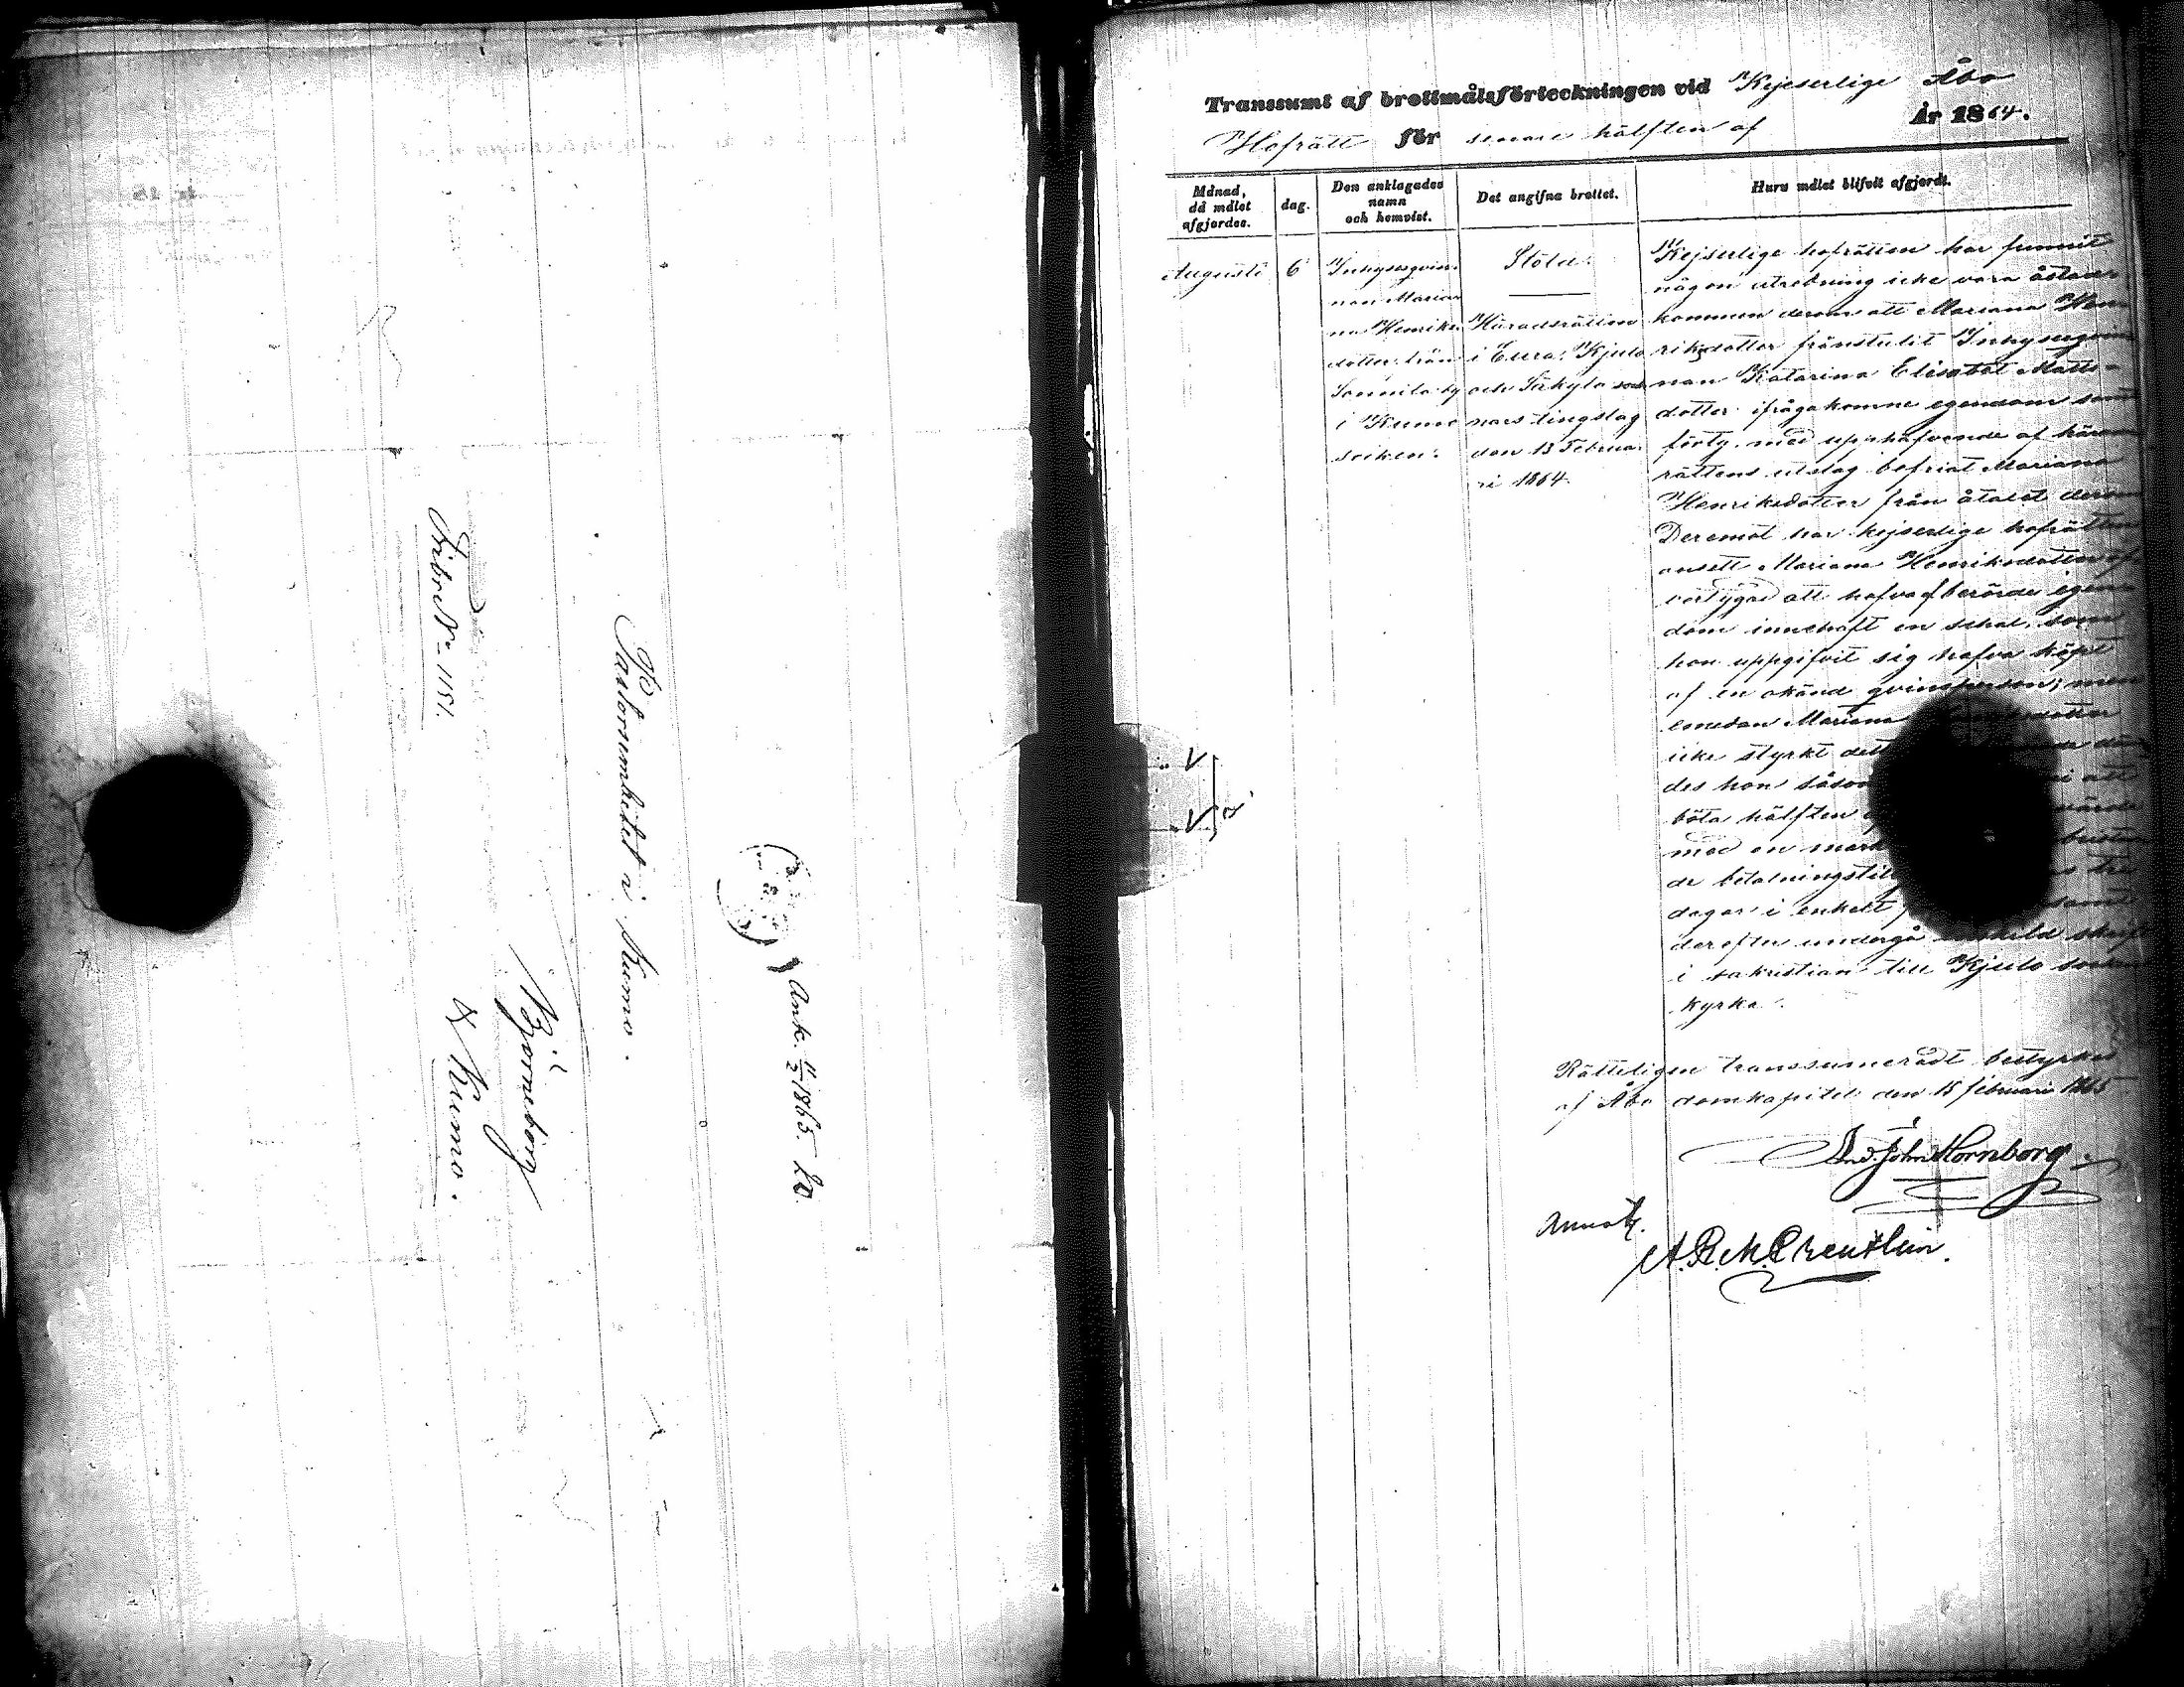 Fribref N 1151.
Björneborg
& Kumo.
Pastorsembetet i Kumo.
Ank. 11/3 1865.
Transsumt af brottmålsförteckningen vid Kejserlige Åbo
Hofrätt för senare hälften af År 1864.
Månad, då målet afgjordes.
dag.
Den anklagades namn och hemvist.
Det angifna brottet.
Huru målet blifvit afgjordt.
Augusti
6
Inhysesqvin-
nan Maria-
na Henriks-
dotter från
Sonnila by
i Kumo
socken.
Stöld.
Häradsrätten
i Eura, Kjulo
och Säkylä sock-
nars tingslag
den 13 Februa-
ri 1864.
Kejserlige hofrätten har funnit
någon utredning icke vara åstad-
kommen derom att Mariana Hen-
riksdotter frånstulit Inhysesqvin-
nan Katarina Elisabet Matts-
dotter ifrågakomne egendom samt
förty, med upphäfvande af härads-
rättens utslag befriat Mariana
Henriksdotter från åtalet derom
Deremot har kejserlige hofrätten
ansett Mariana Henriksdotter
att hafva af berörde egen-
dom innehaft en schal, som
hon uppgifvit sig hafva köpt
af en okänd qvinsperson; men
emedan Mariana
icke styrkt
des hon såsom att
böta hälften värde
med en mark
de betalningstill tre
dagar i enkelt samt
derefter undergå enskild skrift
i sakristian till Kjulo sockens
kyrka.
Rätteligen transsumeradt bestyrkes
af Åbo domkapitel den 15 februari 1865
And. John Hornborg.
A. R. M. Creutlein.